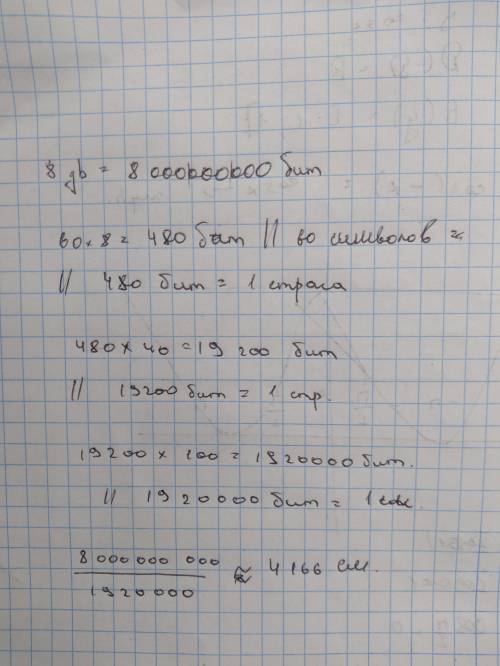 8 gb = 8 000000000 бит
60 × 8 = 480 бит // 60 символов =
// 480 бит = 1 строка
480 × 40 = 19 200 бит
// 19200 бит = 1 стр.
19200 × 100 = 1920000 бит.
// 1920000 бит = 1
8 000 000 000
1920000
≈ 4166 см.